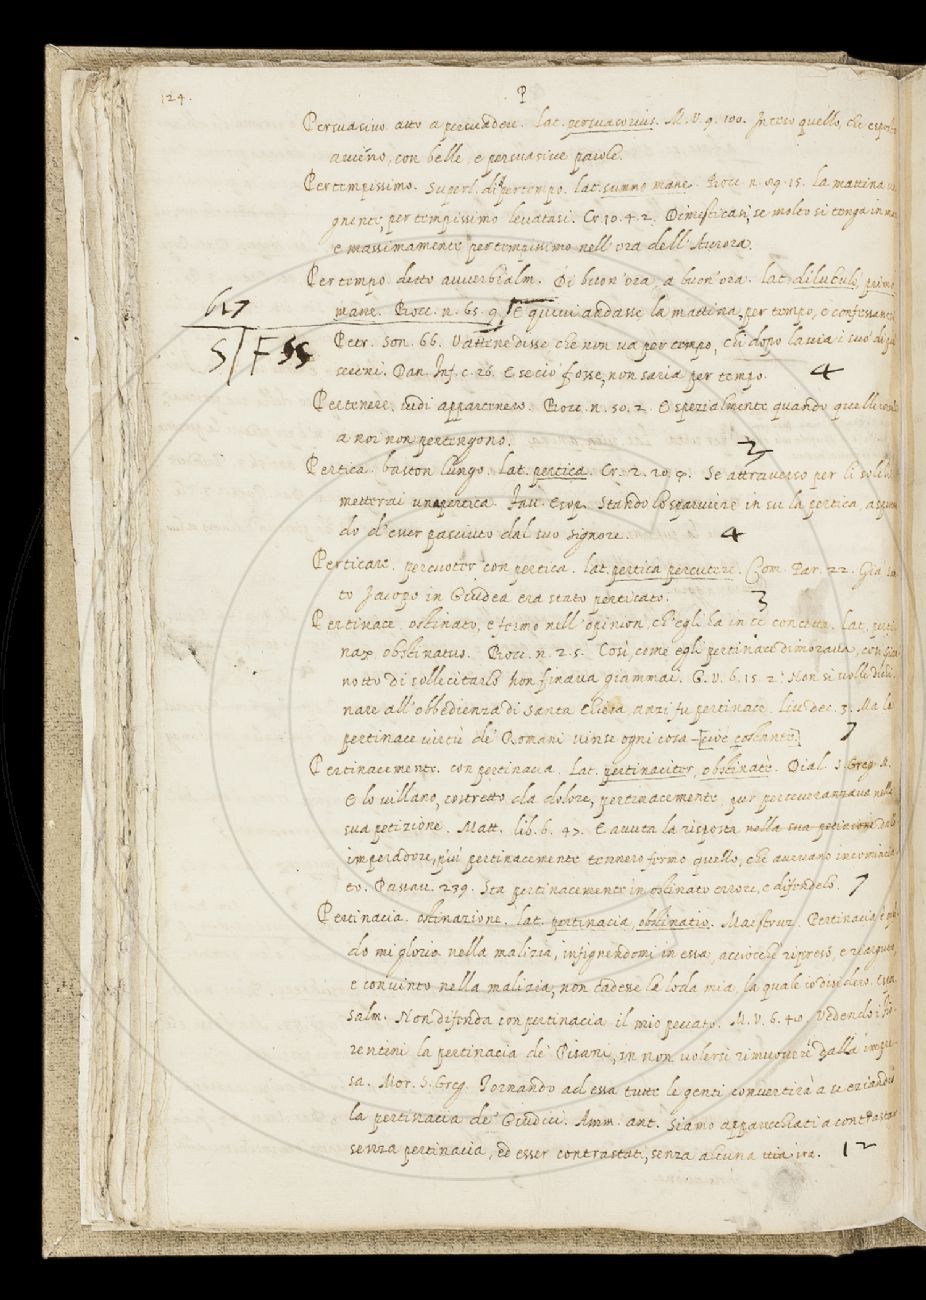 124.
P
Persuasivo. atto a persuadere. lat. persuasorius. M.V. 9. 100. Inteso quello, che esposto
avieno, con belle, e persuasive parole.
Pertempissimo. Superl. di pertempo. lat. summo mane. Bocc. n. 89. 15. la mattina ve
gnente, per tempissimo levatasi. Cr. 10. 4. 2. Dimesticasi, se molto si tenga in ma
e massimamente per tempissimo nell'ora dell'Aurora.
Per tempo. detto avverbialm. Di buon'ora, a buon'ora. lat. diluculo, primo
mane. Bocc. n. 65. 9. E quivi andasse la mattina, per tempo, e confessassesi
617
Petr. Son. 66. Vattene disse che non va per tempo, chi dopo lascia i suo' dì più
S F SS
sereni. Dan. Inf. c. 26. E se ciò fosse, non saria per tempo. 4
Pertenere, vedi appartenere. Bocc. n. 50. 2. E spezialmente quando quelle
a noi non pertengono. 2
Pertica. baston lungo. lat. pertica. Cr. 2. 20. Se attraverso per li solchi
metterai una pertica. Fav. Esop. Stando lo sparviere in su la pertica, aspettan
do d'esser pasciuto dal suo signore. 4
Perticare. percuoter con pertica. lat. pertica percutere. Com. Par. 22. Già
to Jacopo in Giudea era stato perticato. 3
Pertinace. ostinato, e fermo nell'opinion, ch'egli ha in se concetta. lat. perti
nax obstinatus. Bocc. n. 2. 5. Così, come egli pertinace dimorava, così Gian
notto di sollecitarlo non finava giammai. G.V. 6. 15. 2. Non si volle dichi
nare all'obbedienza di santa Chiesa, anzi fu pertinace. Liv. dec. 3. Ma la
pertinace virtù de' Romani vinse ogni cosa [cioè costante] 7
Pertinacemente. con pertinacia. Lat. pertinaciter, obstinate. Dial. S. Greg. M.
E lo villano, costretto dal dolore, pertinacemente pur perseveranzava nella
sua petizione. Matt. lib. 6. 47. E avuta la risposta nella sua petizione dallo
imperadore, più pertinacemente tennero fermo quello, che avevano incomincia
to. Passav. 239. Sta pertinacemente in ostinato errore, e difendelo. 7
Pertinacia. ostinazione. lat. pertinacia, obstinatio. Maestruz. Pertinacia è
do mi glorio nella malizia, infignendomi in essa, acciocchè ripreso, e riarguito,
e convinto nella malizia, non cadesse la loda mia, la quale io disidero.
salm. Non difenda con pertinacia il mio peccato. M.V. 6. 48. Vedendo i Fio
rentini la pertinacia de' Pisani, in non volersi rimuovere dalla impre
sa. Mor. S. Greg. Tornando ad essa tutte le genti convertirà a se eziandio
la pertinacia de' Giudici. Amm. ant. Siamo apparecchiati a contrastar
senza pertinacia, ed esser contrastati, senza alcuna ira. 12